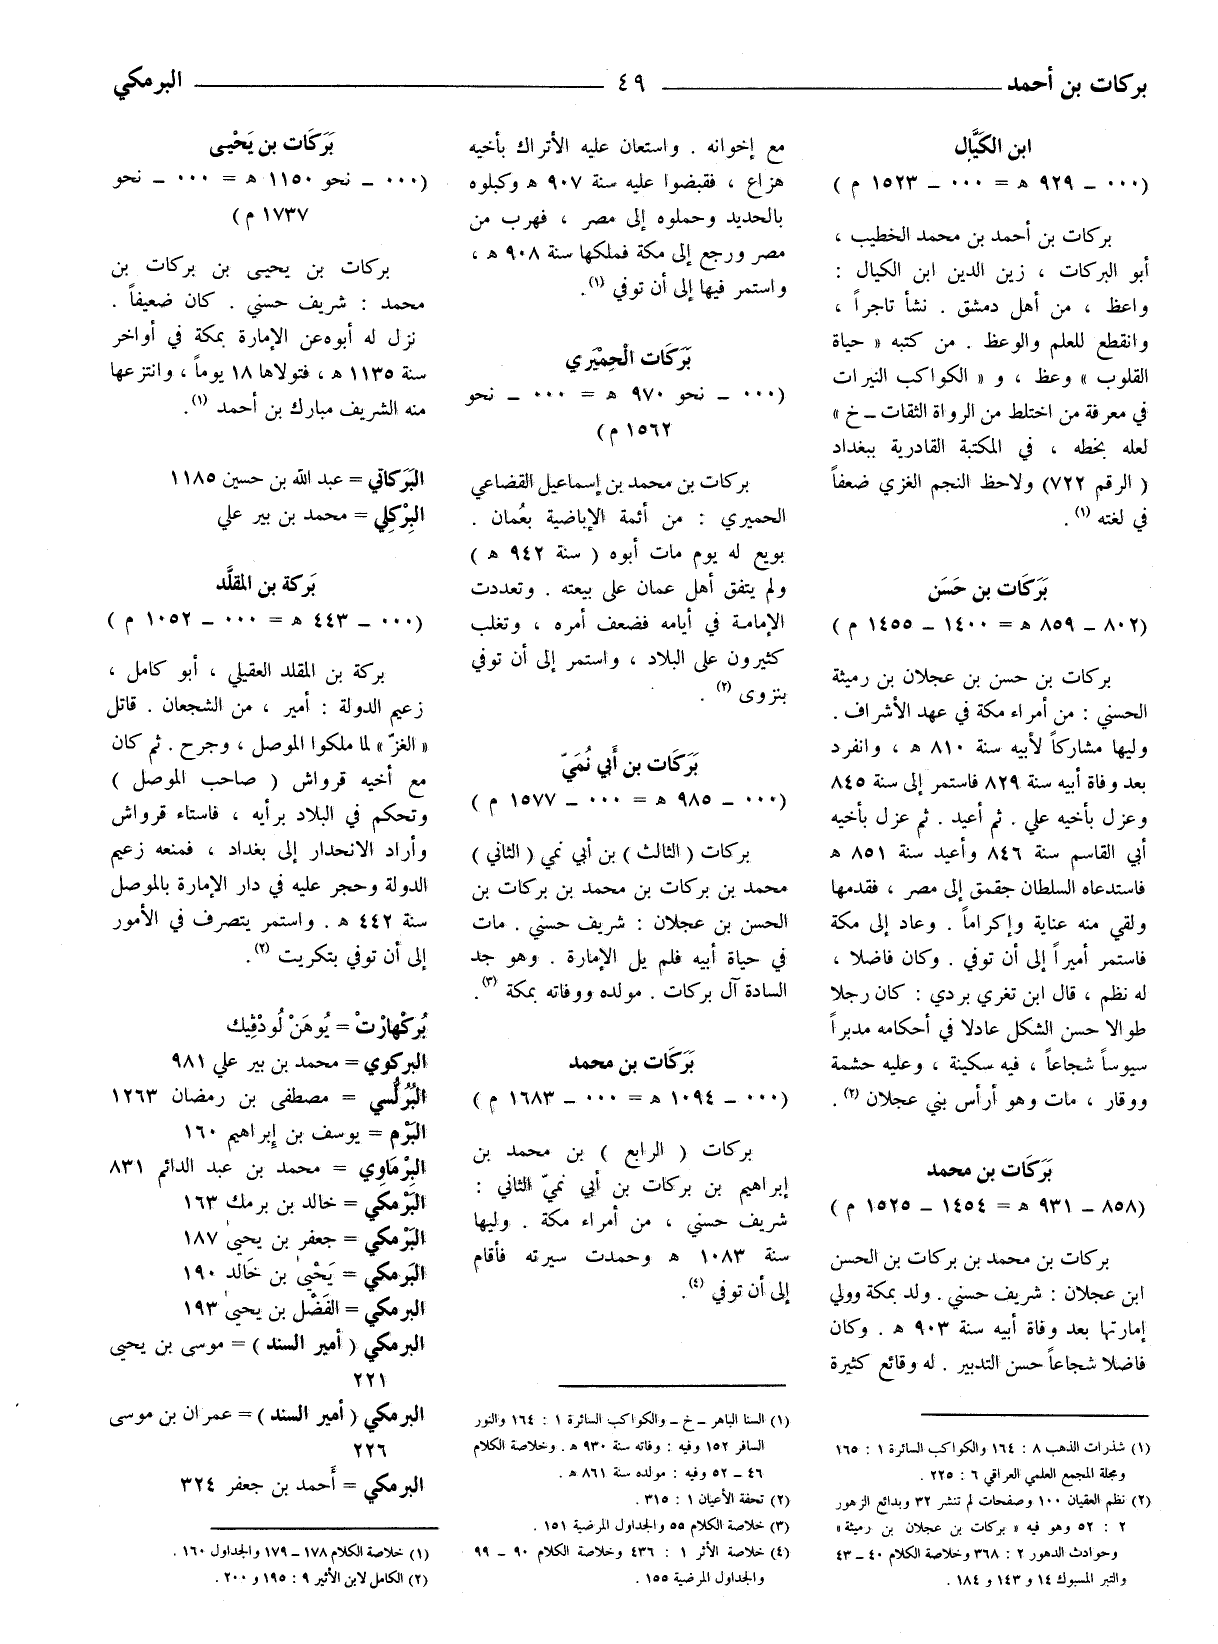 بركات بن أحمد ٤٩ البرمكي
ابن الكَيَّال
(٠٠٠ ــ ٩٢٩ هـ = ٠٠٠ ــ ١٥٢٣ م)
بركات بن أحمد بن محمد الخطيب ،
أبو البركات ، زين الدين ابن الكيال :
واعظ ، من أهل دمشق . نشأ تاجراً ،
وانقطع للعلم والوعظ . من كتبه « حياة
القلوب » وعظ ، و « الكواكب النيرات
في معرفة من اختلط من الرواة الثقات ــ خ »
لعله بخطه ، في المكتبة القادرية ببغداد
( الرقم ٧٢٢) ولاحظ النجم الغزي ضعفاً
في لغته (١) .
بَرَكَات بن حَسَن
(٨٠٢ ــ ٨٥٩ هـ = ١٤٠٠ ــ ١٤٥٥ م )
بركات بن حسن بن عجلان بن رميثة
الحسني : من أمراء مكة في عهد الأشراف .
وليها مشاركاً لأبيه سنة ٨١٠ هـ ، وانفرد
بعد وفاة أبيه سنة ٨٢٩ فاستمر إلى سنة ٨٤٥
وعزل بأخيه علي . ثم أعيد . ثم عزل بأخيه
أبي القاسم سنة ٨٤٦ وأعيد سنة ٨٥١ هـ
فاستدعاه السلطان جقمق إلى مصر ، فقدمها
ولقي منه عناية وإكراماً . وعاد إلى مكة
فاستمر أميراً إلى أن توفي . وكان فاضلا ،
له نظم ، قال ابن تغري بردي : كان رجلا
طوالا حسن الشكل عادلا في أحكامه مدبراً
سيوساً شجاعاً ، فيه سكينة ، وعليه حشمة
ووقار ، مات وهو أرأس بني عجلان (٢) .
بَرَكَات بن محمد
(٨٥٨ ــ ٩٣١ هـ = ١٤٥٤ ــ ١٥٢٥ م )
بركات بن محمد بن بركات بن الحسن
ابن عجلان : شريف حسني . ولد بمكة وولي
إمارتها بعد وفاة أبيه سنة ٩٠٣ هـ . وكان
فاضلا شجاعاً حسن التدبير . له وقائع كثيرة
(١) شذرات الذهب ٨ : ١٦٤ والكواكب السائرة ١ : ١٦٥
ومجلة المجمع العلمي العراقي ٦ : ٢٢٥ .
(٢) نظم العقيان ١٠٠ وصفحات لم تنشر ٣٢ وبدائع الزهور
٢ : ٥٢ وهو فيه « بركات بن عجلان بن رميثة »
وحوادث الدهور ٢ : ٣٦٨ وخلاصة الكلام ٤٠ ــ ٤٣
والتبر المسبوك ١٤ و ١٤٣ و ١٨٤ .
مع إخوانه . واستعان عليه الأتراك بأخيه
هزاع ، فقبضوا عليه سنة ٩٠٧ هـ وكبلوه
بالحديد وحملوه إلى مصر ، فهرب من
مصر ورجع إلى مكة فملكها سنة ٩٠٨ هـ ،
واستمر فيها إلى أن توفي (١) .
بَرَكَات الْحِمْيَري
(٠٠٠ ــ نحو ٩٧٠ هـ = ٠٠٠ ــ نحو
١٥٦٢ م)
بركات بن محمد بن إسماعيل القضاعي
الحميري : من أئمة الإباضية بعُمان .
بويع له يوم مات أبوه ( سنة ٩٤٢ هـ )
ولم يتفق أهل عمان على بيعته . وتعددت
الإمامة في أيامه فضعف أمره ، وتغلب
كثيرون على البلاد ، واستمر إلى أن توفي
بنزوى (٢) .
بَرَكَات بن أَبي نُمَيّ
(٠٠٠ ــ ٩٨٥ هـ = ٠٠٠ ــ ١٥٧٧ م )
بركات ( الثالث ) بن أبي نمي ( الثاني )
محمد بن بركات بن محمد بن بركات بن
الحسن بن عجلان : شريف حسني . مات
في حياة أبيه فلم يل الإمارة . وهو جد
السادة آل بركات . مولده ووفاته بمكة (٣) .
بَرَكَات بن محمد
(٠٠٠ ــ ١٠٩٤ هـ = ٠٠٠ ــ ١٦٨٣ م )
بركات ( الرابع ) بن محمد بن
إبراهيم بن بركات بن أبي نميّ الثاني :
شريف حسني ، من أمراء مكة . وليها
سنة ١٠٨٣ هـ وحمدت سيرته فأقام
إلى أن توفي (٤) .
(١) السنا الباهر ــ خ ــ والكواكب السائرة ١ : ١٦٤ والنور
السافر ١٥٢ وفيه : وفاته سنة ٩٣٠ هـ . وخلاصة الكلام
٤٦ ــ ٥٢ وفيه : مولده سنة ٨٦١ هـ .
(٢) تحفة الأعيان ١ : ٣١٥ .
(٣) خلاصة الكلام ٥٥ والجداول المرضية ١٥١ .
(٤) خلاصة الأثر ١ : ٤٣٦ وخلاصة الكلام ٩٠ ــ ٩٩
والجداول المرضية ١٥٥ .
بَرَكَات بن يَحْيـى
(٠٠٠ ــ نحو ١١٥٠ هـ = ٠٠٠ ــ نحو
١٧٣٧ م )
بركات بن يحيى بن بركات بن
محمد : شريف حسني . كان ضعيفاً .
نزل له أبوه عن الإمارة بمكة في أواخر
سنة ١١٣٥ هـ ، فتولاها ١٨ يوماً ، وانتزعها
منه الشريف مبارك بن أحمد (١) .
البَرَكاتي = عبد الله بن حسين ١١٨٥
البِرْكِلِي = محمد بن بير علي
بَركة بن المقلَّد
(٠٠٠ ــ ٤٤٣ هـ = ٠٠٠ ــ ١٠٥٢ م )
بركة بن المقلد العقيلي ، أبو كامل ،
زعيم الدولة : أمير ، من الشجعان . قاتل
« الغزّ » لما ملكوا الموصل ، وجرح . ثم كان
مع أخيه قرواش ( صاحب الموصل )
وتحكم في البلاد برأيه ، فاستاء قرواش
وأراد الانحدار إلى بغداد ، فمنعه زعيم
الدولة وحجر عليه في دار الإمارة بالموصل
سنة ٤٤٢ هـ . واستمر يتصرف في الأمور
إلى أن توفي بتكريت (٢) .
بُركْهارْتْ = يُوهَنْ لُودْفِيك
البركوي = محمد بن بير علي ٩٨١
البُرُلُّسي = مصطفى بن رمضان ١٢٦٣
البَرْم = يوسف بن إبراهيم ١٦٠
البِرْمَاوِي = محمد بن عبد الدائم ٨٣١
البَرْمكي = خالد بن برمك ١٦٣
البَرْمكي = جعفر بن يحيىٰ ١٨٧
البَرمكي = يَحْيىٰ بن خَالد ١٩٠
البرمكي = الفَضْل بن يحيىٰ ١٩٣
البرمكي ( أمير السند ) = موسى بن يحيى
٢٢١
البرمكي ( أمير السند ) = عمران بن موسى
٢٢٦
البرمكي = أَحمد بن جعفر ٣٢٤
(١) خلاصة الكلام ١٧٨ ــ ١٧٩ والجداول ١٦٠ .
(٢) الكامل لابن الأثير ٩ : ١٩٥ و ٢٠٠ .